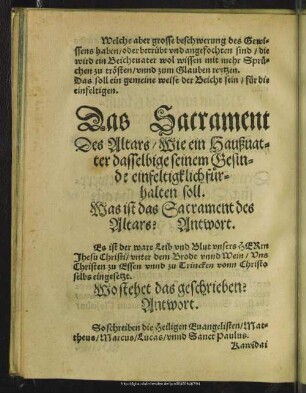 Welche aber grosse beschwerung des Gewis-
sens haben/oder betrübt vnd angefochten sind/die
wird ein Beichtuater wol wissen mit mehr Sprü-
chen zu trösten/vnnd zum Glauben reytzen.
Das soll ein gemeine weise der Beicht sein/für die
einfeltigen.
Das Sacrament
Des Altars/Wie ein Haußuat-
ter dasselbige seinem Gesin-
de einfeltigklich für-
halten soll.
Was ist das Sacrament des
Altars? Antwort.
Es ist der ware Leib vnd Blut vnsers HERrn
Jhesu Christi/vnter dem Brode vnnd Wein/Vns
Christen zu Essen vnnd zu Trincken vonn Christo
selbs eingesetzt.
Wo stehet das geschrieben?
Antwort.
So schreiben die Heiligen Euangelisten/Mat-
theus/Marcus/Lucas/vnnd Sanct Paulus.